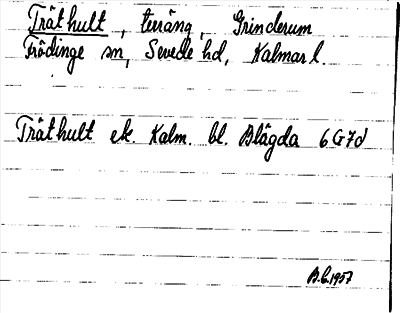 Tråthult, terräng, Grinderum
Frödinge sn, Sevede hd, Kalmar l.
Tråthult ek. Kalm. bl. Blägda 6G7d
B.C. 1957